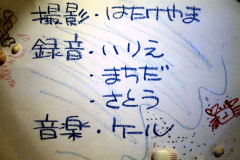 撮影・はたけやま
録音・いりえ
・まちだ
・さとう
音楽・ケール